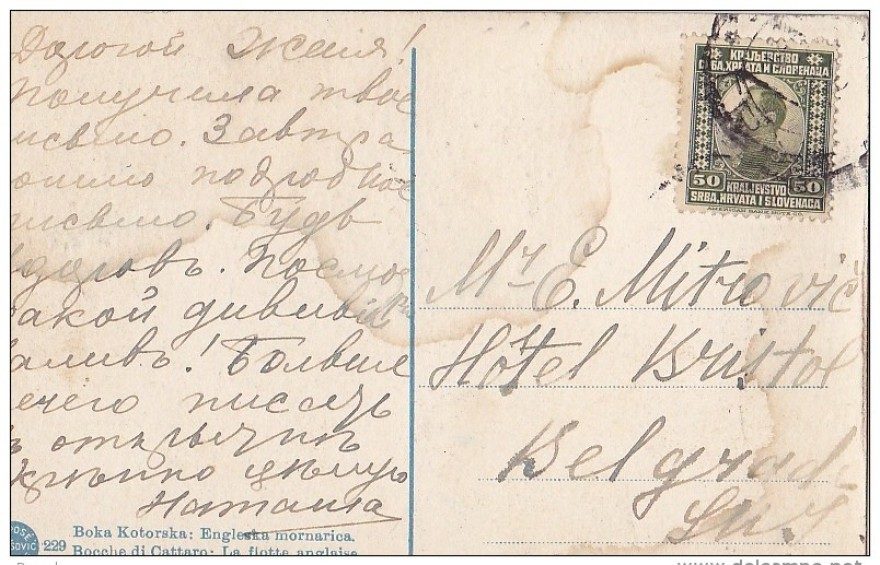 Дорогой Жаня!
Получила твое
исьмо. Завтра
ошлю подробное
исьмо. Будь
здоровъ. Посмо
какой дивный
аливъ! Больше
ечего писать
въ открытки
Крѣпко цѣлую
Наташа
КРАЉЕВСТВО
СРБА, ХРВАТА И СЛОВЕНАЦА
50 KRALJEVSTVO 50
SRBA, HRVATA I SLOVENACA
AMERICAN BANK NOTE CO.
Mr E. Mitrović
Hôtel Bristol
Belgrad
229 Boka Kotorska: Engleska mornarica.
Bocche di Cattaro: La flotte anglaise
www.delcampe.net